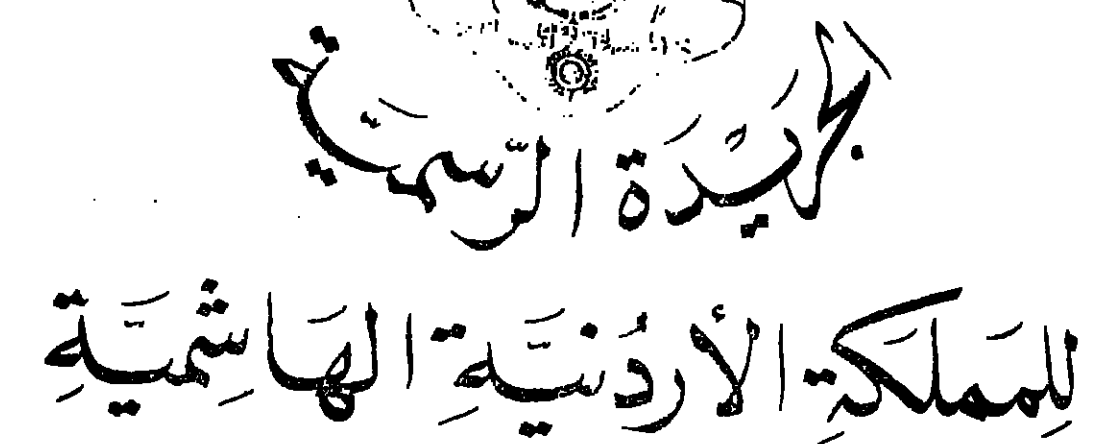 الجَرِيدَة الرَّسميَّة
لِلمَملَكَةِ الأردُنيَّةِ الهَاشِميَّةِ